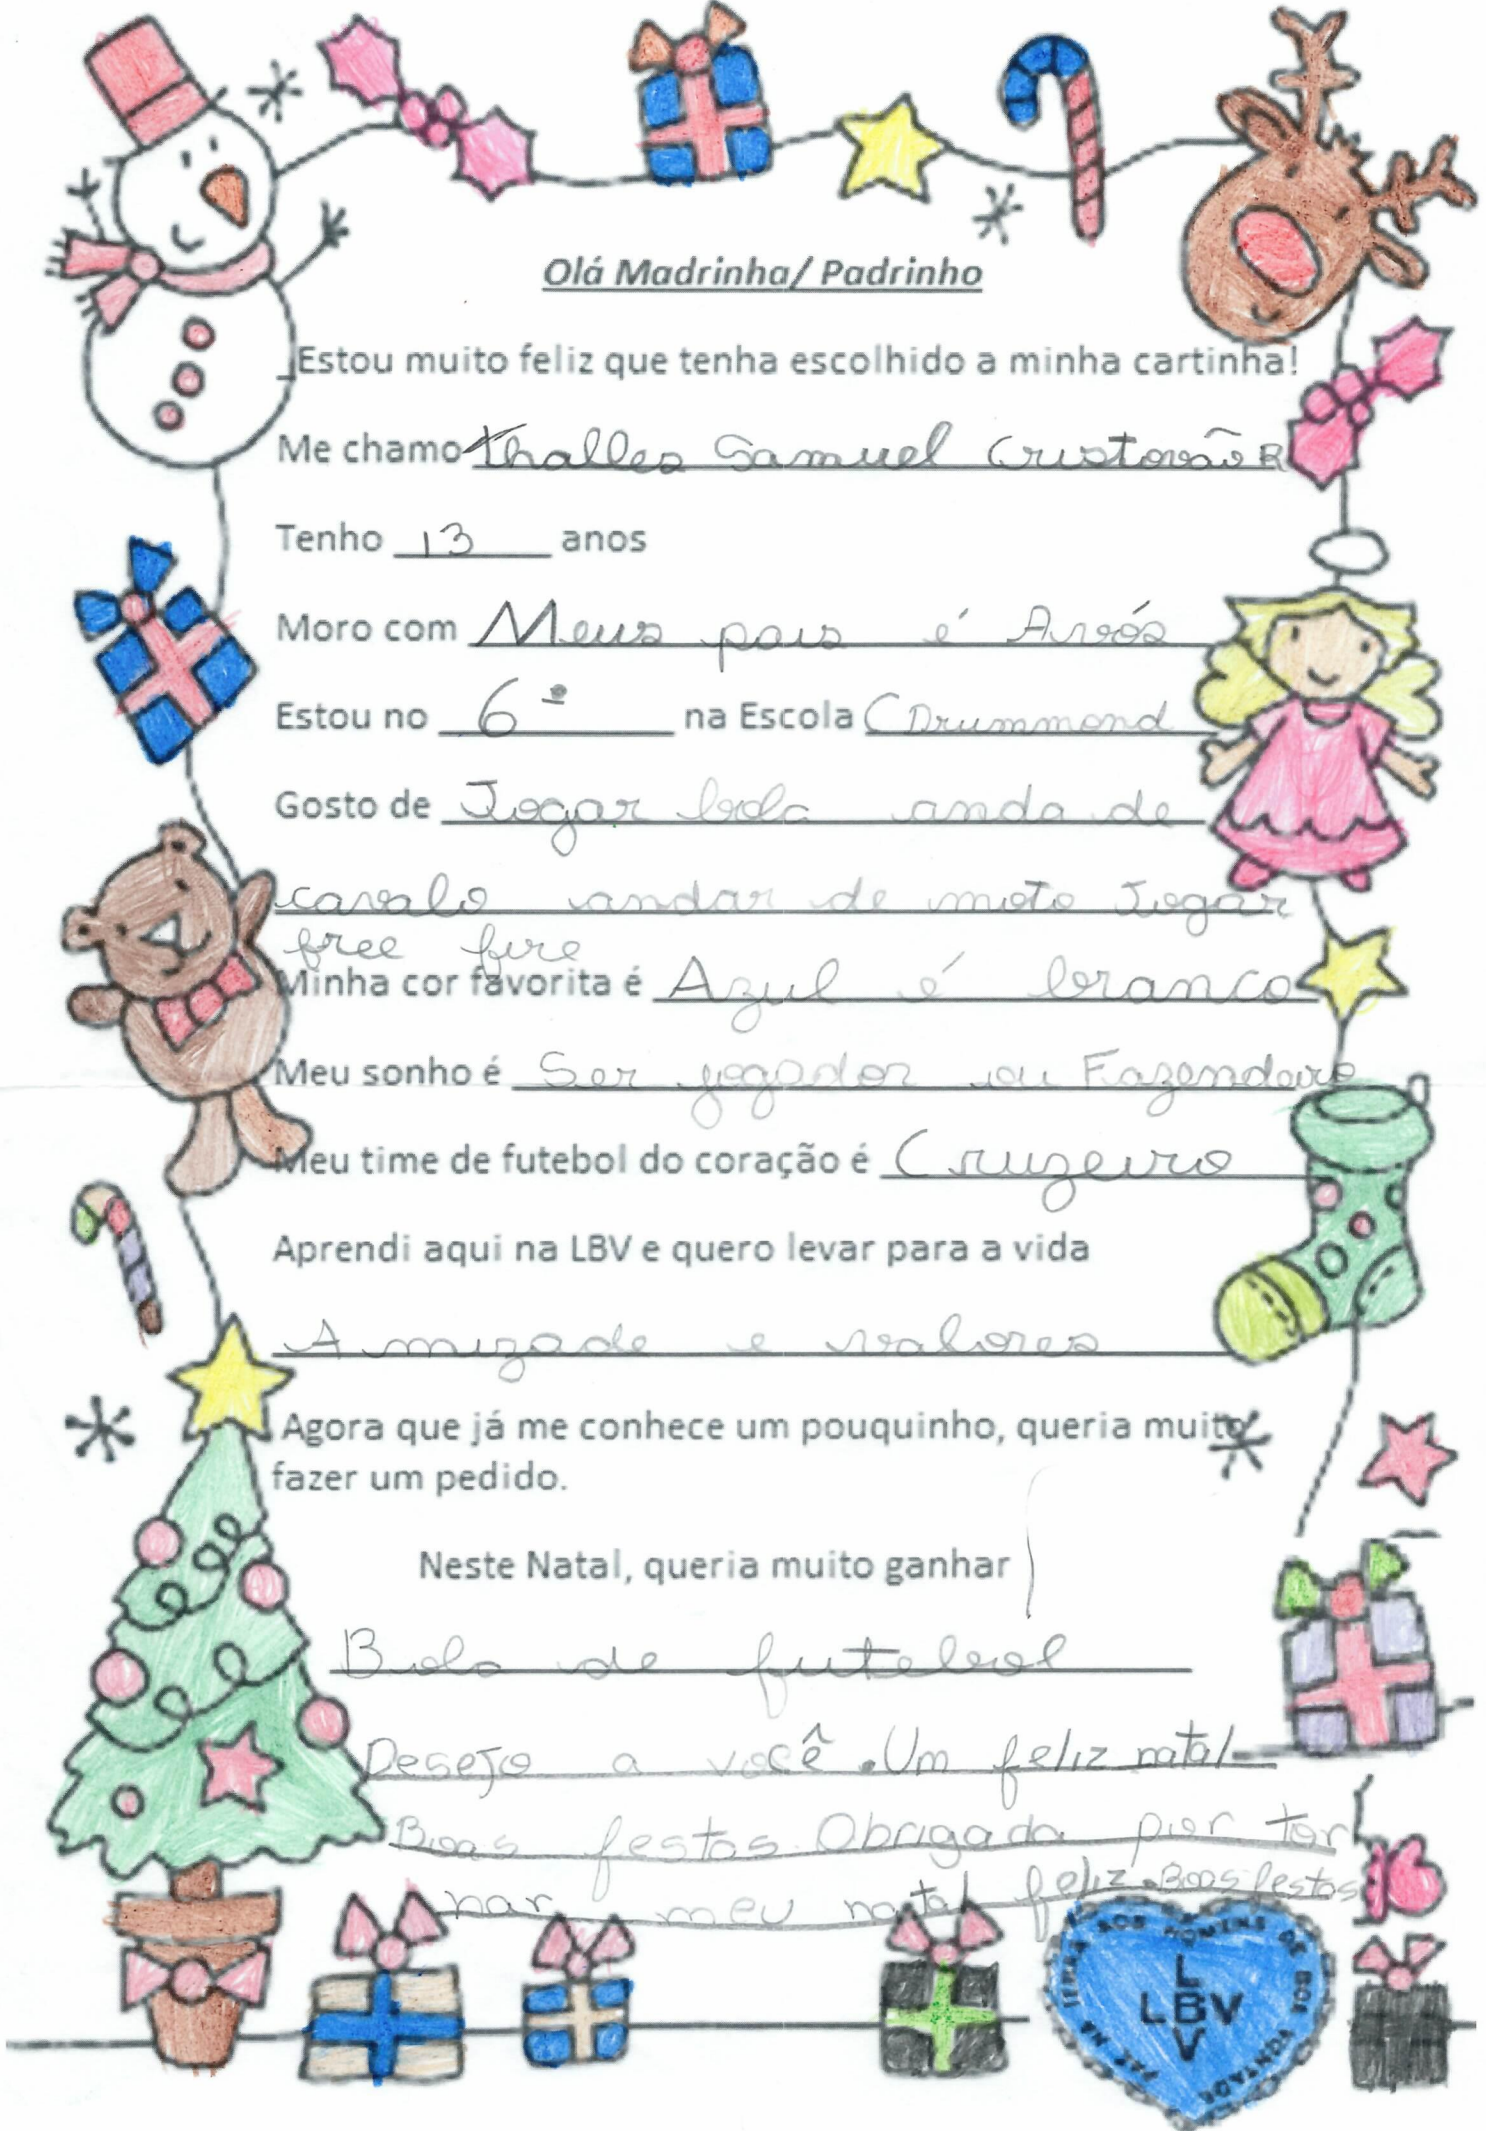 Olá Madrinha/ Padrinho
Estou muito feliz que tenha escolhido a minha cartinha!
Me chamo Thalles Samuel Cristovão R
Tenho 13 anos
Moro com Meus pais é Avós
Estou no 6º na Escola C Drummond
Gosto de Jogar bola anda de
cavalo andar de moto Jogar
free fire
Minha cor favorita é Azul é branco
Meu sonho é Ser jogador ou Fazendeiro
Meu time de futebol do coração é Cruzeiro
Aprendi aqui na LBV e quero levar para a vida
Amizade e valores
Agora que já me conhece um pouquinho, queria muito
fazer um pedido.
Neste Natal, queria muito ganhar
Bola de futebol
Desejo a você . Um feliz natal
Boas festas Obrigada por tor
nar meu natal feliz. Boas festas
L
LBV
V